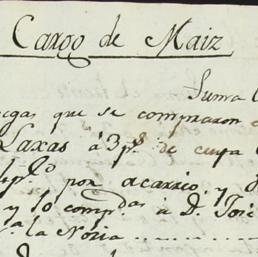 Cargo de Maiz
Suma
egas que se compraron
Laxas á 3 p.s de cuya
por acarreo, y
y lo comp.das á D. José
a la Noria